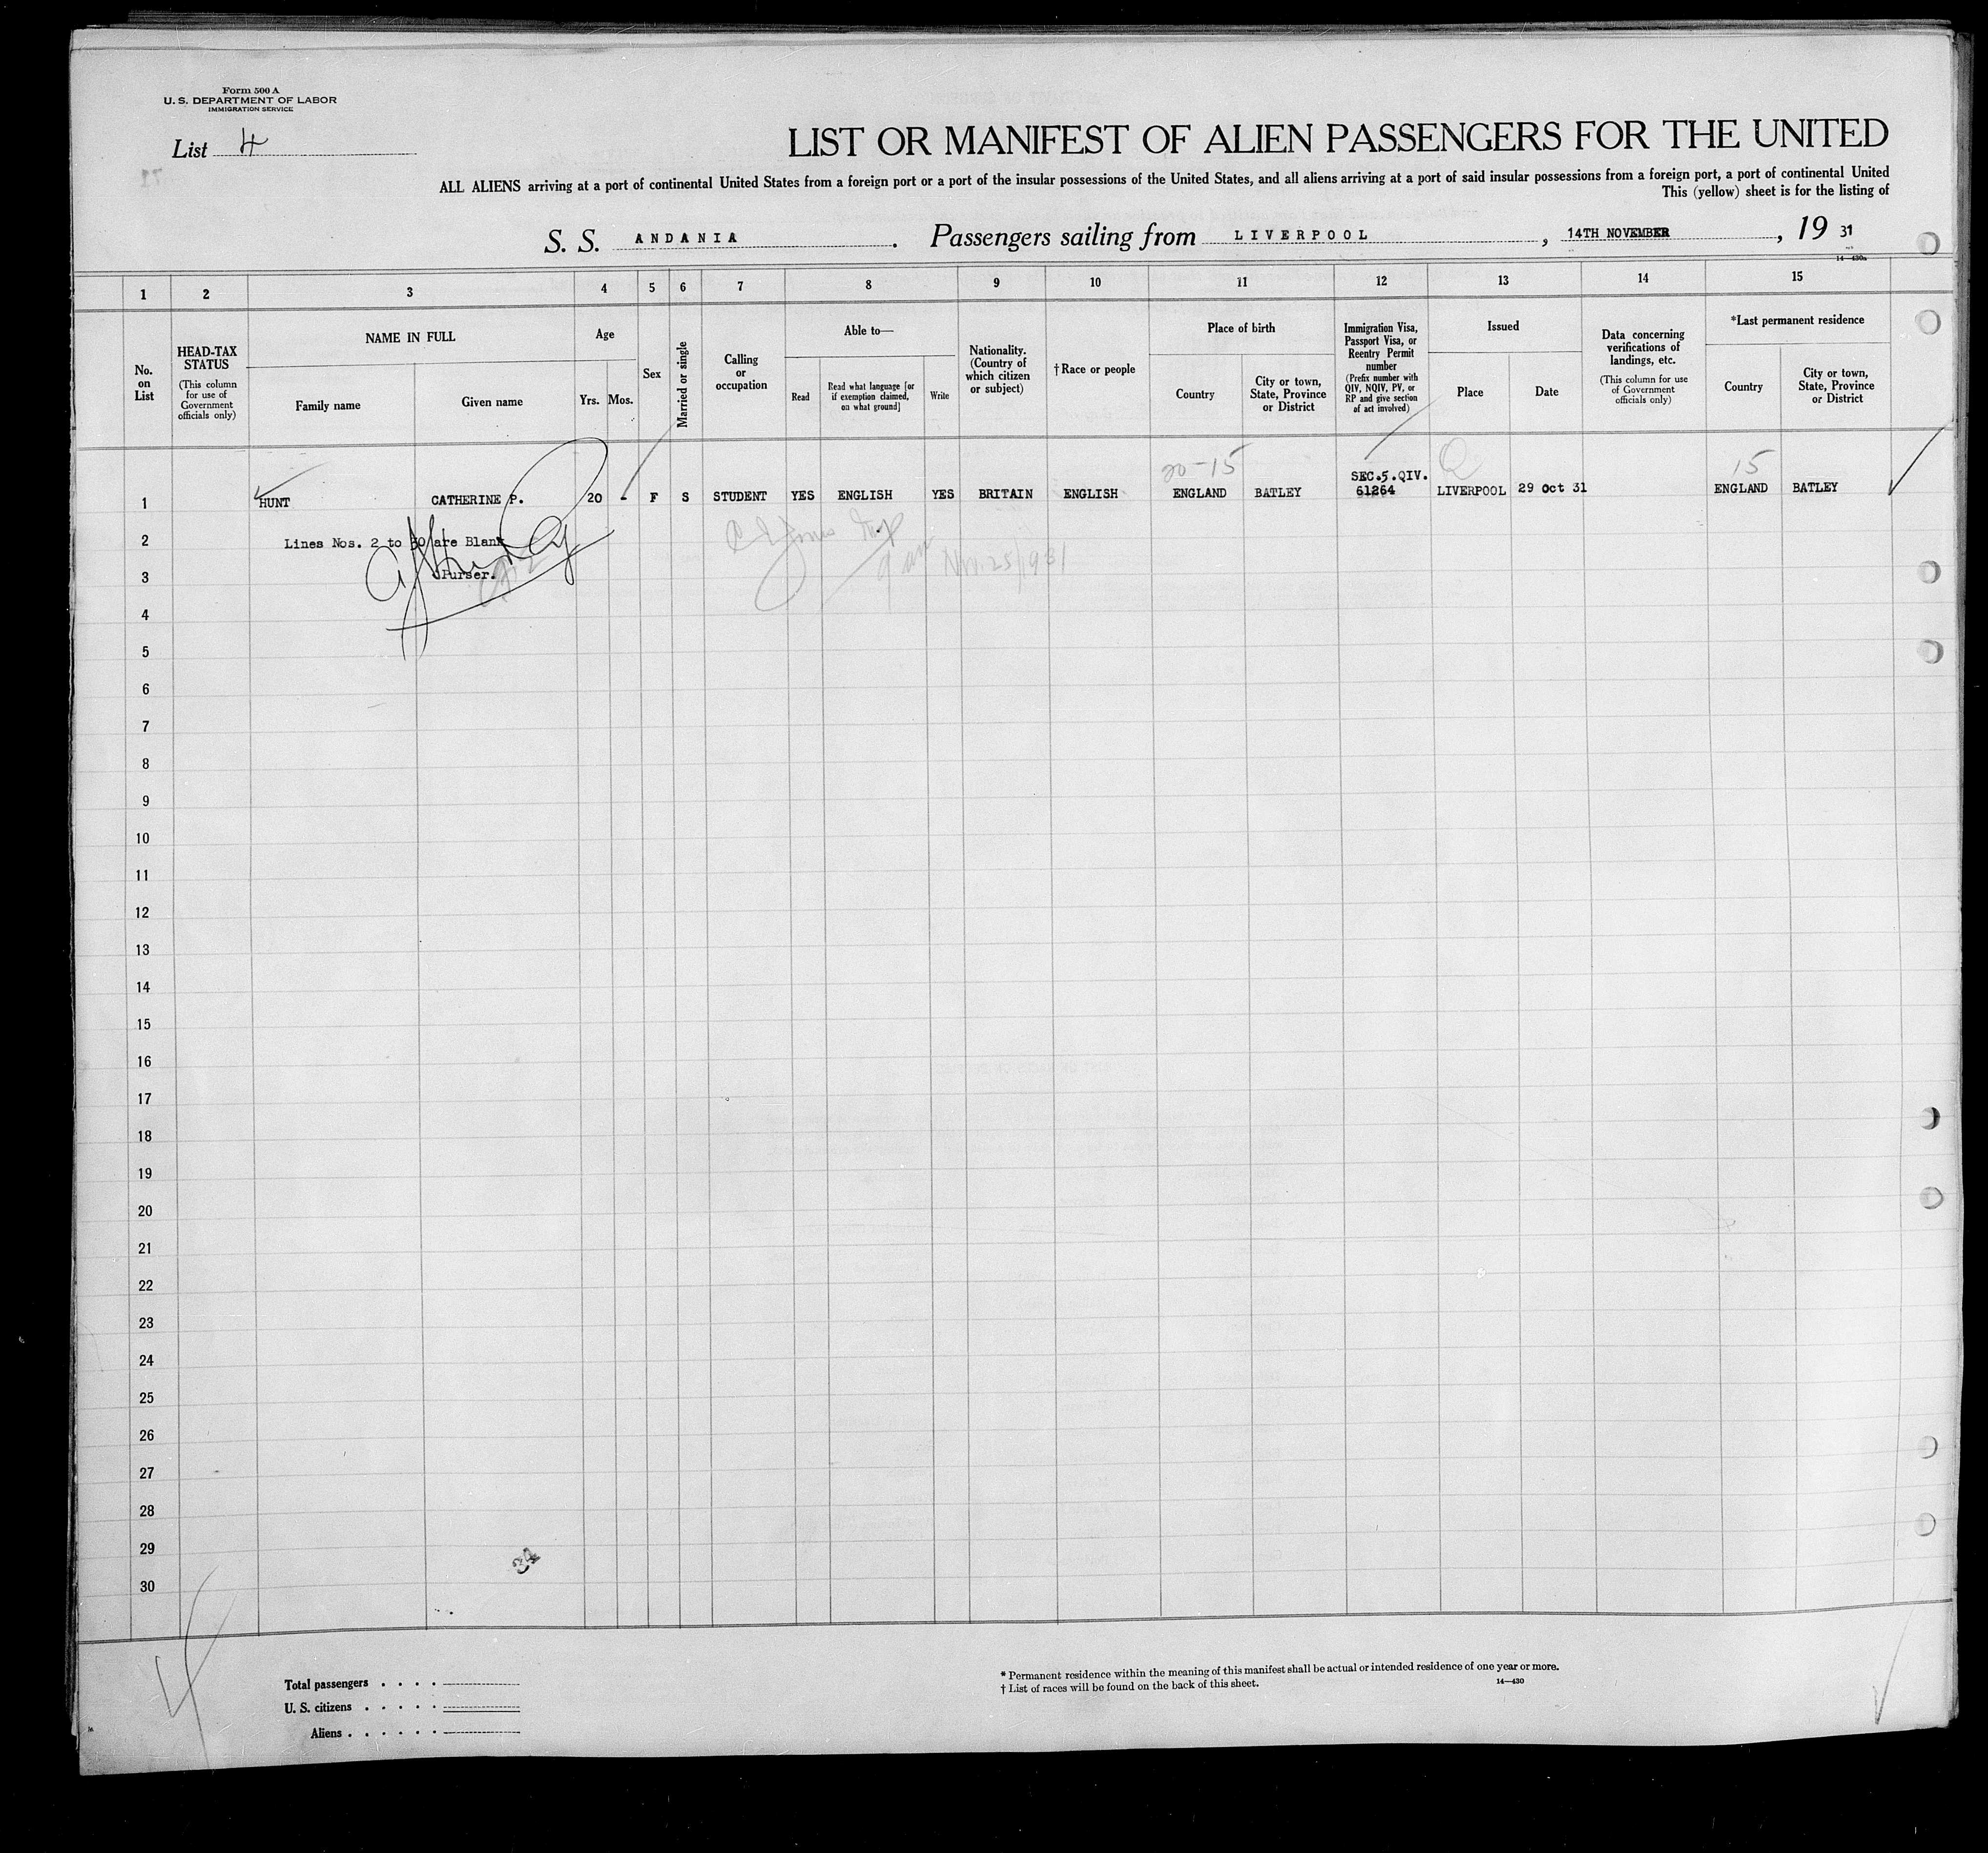 Form 500 A
U. S. DEPARTMENT OF LABOR
IMMIGRATION SERVICE
List 4
LIST OR MANIFEST OF ALIEN PASSENGERS FOR THE UNITED
ALL ALIENS arriving at a port of continental United States from a foreign port or a port of the insular possessions of the United States, and all aliens arriving at a port of said insular possessions from a foreign port, a port of continental United
This (yellow) sheet is for the listing of
S. S. ANDANIA. Passengers sailing from LIVERPOOL, 14TH NOVEMBER, 19 31
14—430a
1 2 3 4 5 6 7 8 9 10 11 12 13 14 15
No. on List
HEAD-TAX STATUS
(This column for use of Government officials only)
NAME IN FULL
Family name
Given name
Age
Yrs. Mos.
Sex
Married or single
Calling or occupation
Able to—
Read
Read what language [or if exemption claimed, on what ground]
Write
Nationality. (Country of which citizen or subject)
†Race or people
Place of birth
Country
City or town, State, Province or District
Immigration Visa, Passport Visa, or Reentry Permit number
(Prefix number with QIV, NQIV, PV, or RP and give section of act involved)
Issued
Place
Date
Data concerning verifications of landings, etc.
(This column for use of Government officials only)
*Last permanent residence
Country
City or town, State, Province or District
20-15 Q 15
SEC.5.QIV.
1 HUNT CATHERINE P. 20 - F S STUDENT YES ENGLISH YES BRITAIN ENGLISH ENGLAND BATLEY 61264 LIVERPOOL 29 Oct 31 ENGLAND BATLEY
2 Lines Nos. 2 to 30 are Blank
Nov. 25/1931
3 Purser.
4
5
6
7
8
9
10
11
12
13
14
15
16
17
18
19
20
21
22
23
24
25
26
27
28
29
34
30
Total passengers . . . .
U. S. citizens . . . . .
Aliens . . . . . .
* Permanent residence within the meaning of this manifest shall be actual or intended residence of one year or more.
† List of races will be found on the back of this sheet.
14—430